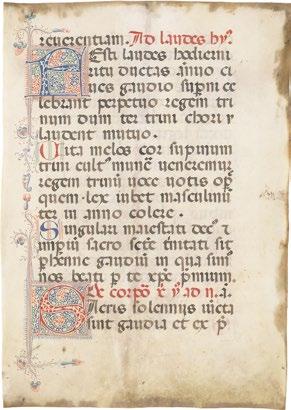 reuerentiam. Ad laudes hy.
Festi laudes hodierni
ritu ductas anno ci
ues gaudio supni ce
lebrant perpetuo regem tri
num dum ter trini chori y
laudent mutuo.
Vita melos cor supmum
trini cult mune ueneremur
regem trinu uoce uotis op
quem lex iubet masculinu
ter in anno colere.
Singulari maiestati
impiu sacro trinitati sit
phenne gaudiu in qua sum
nos beati p te xpe pmium.
De corpo x y ad
Sacris solemniis iucta
sint gaudia et ex p